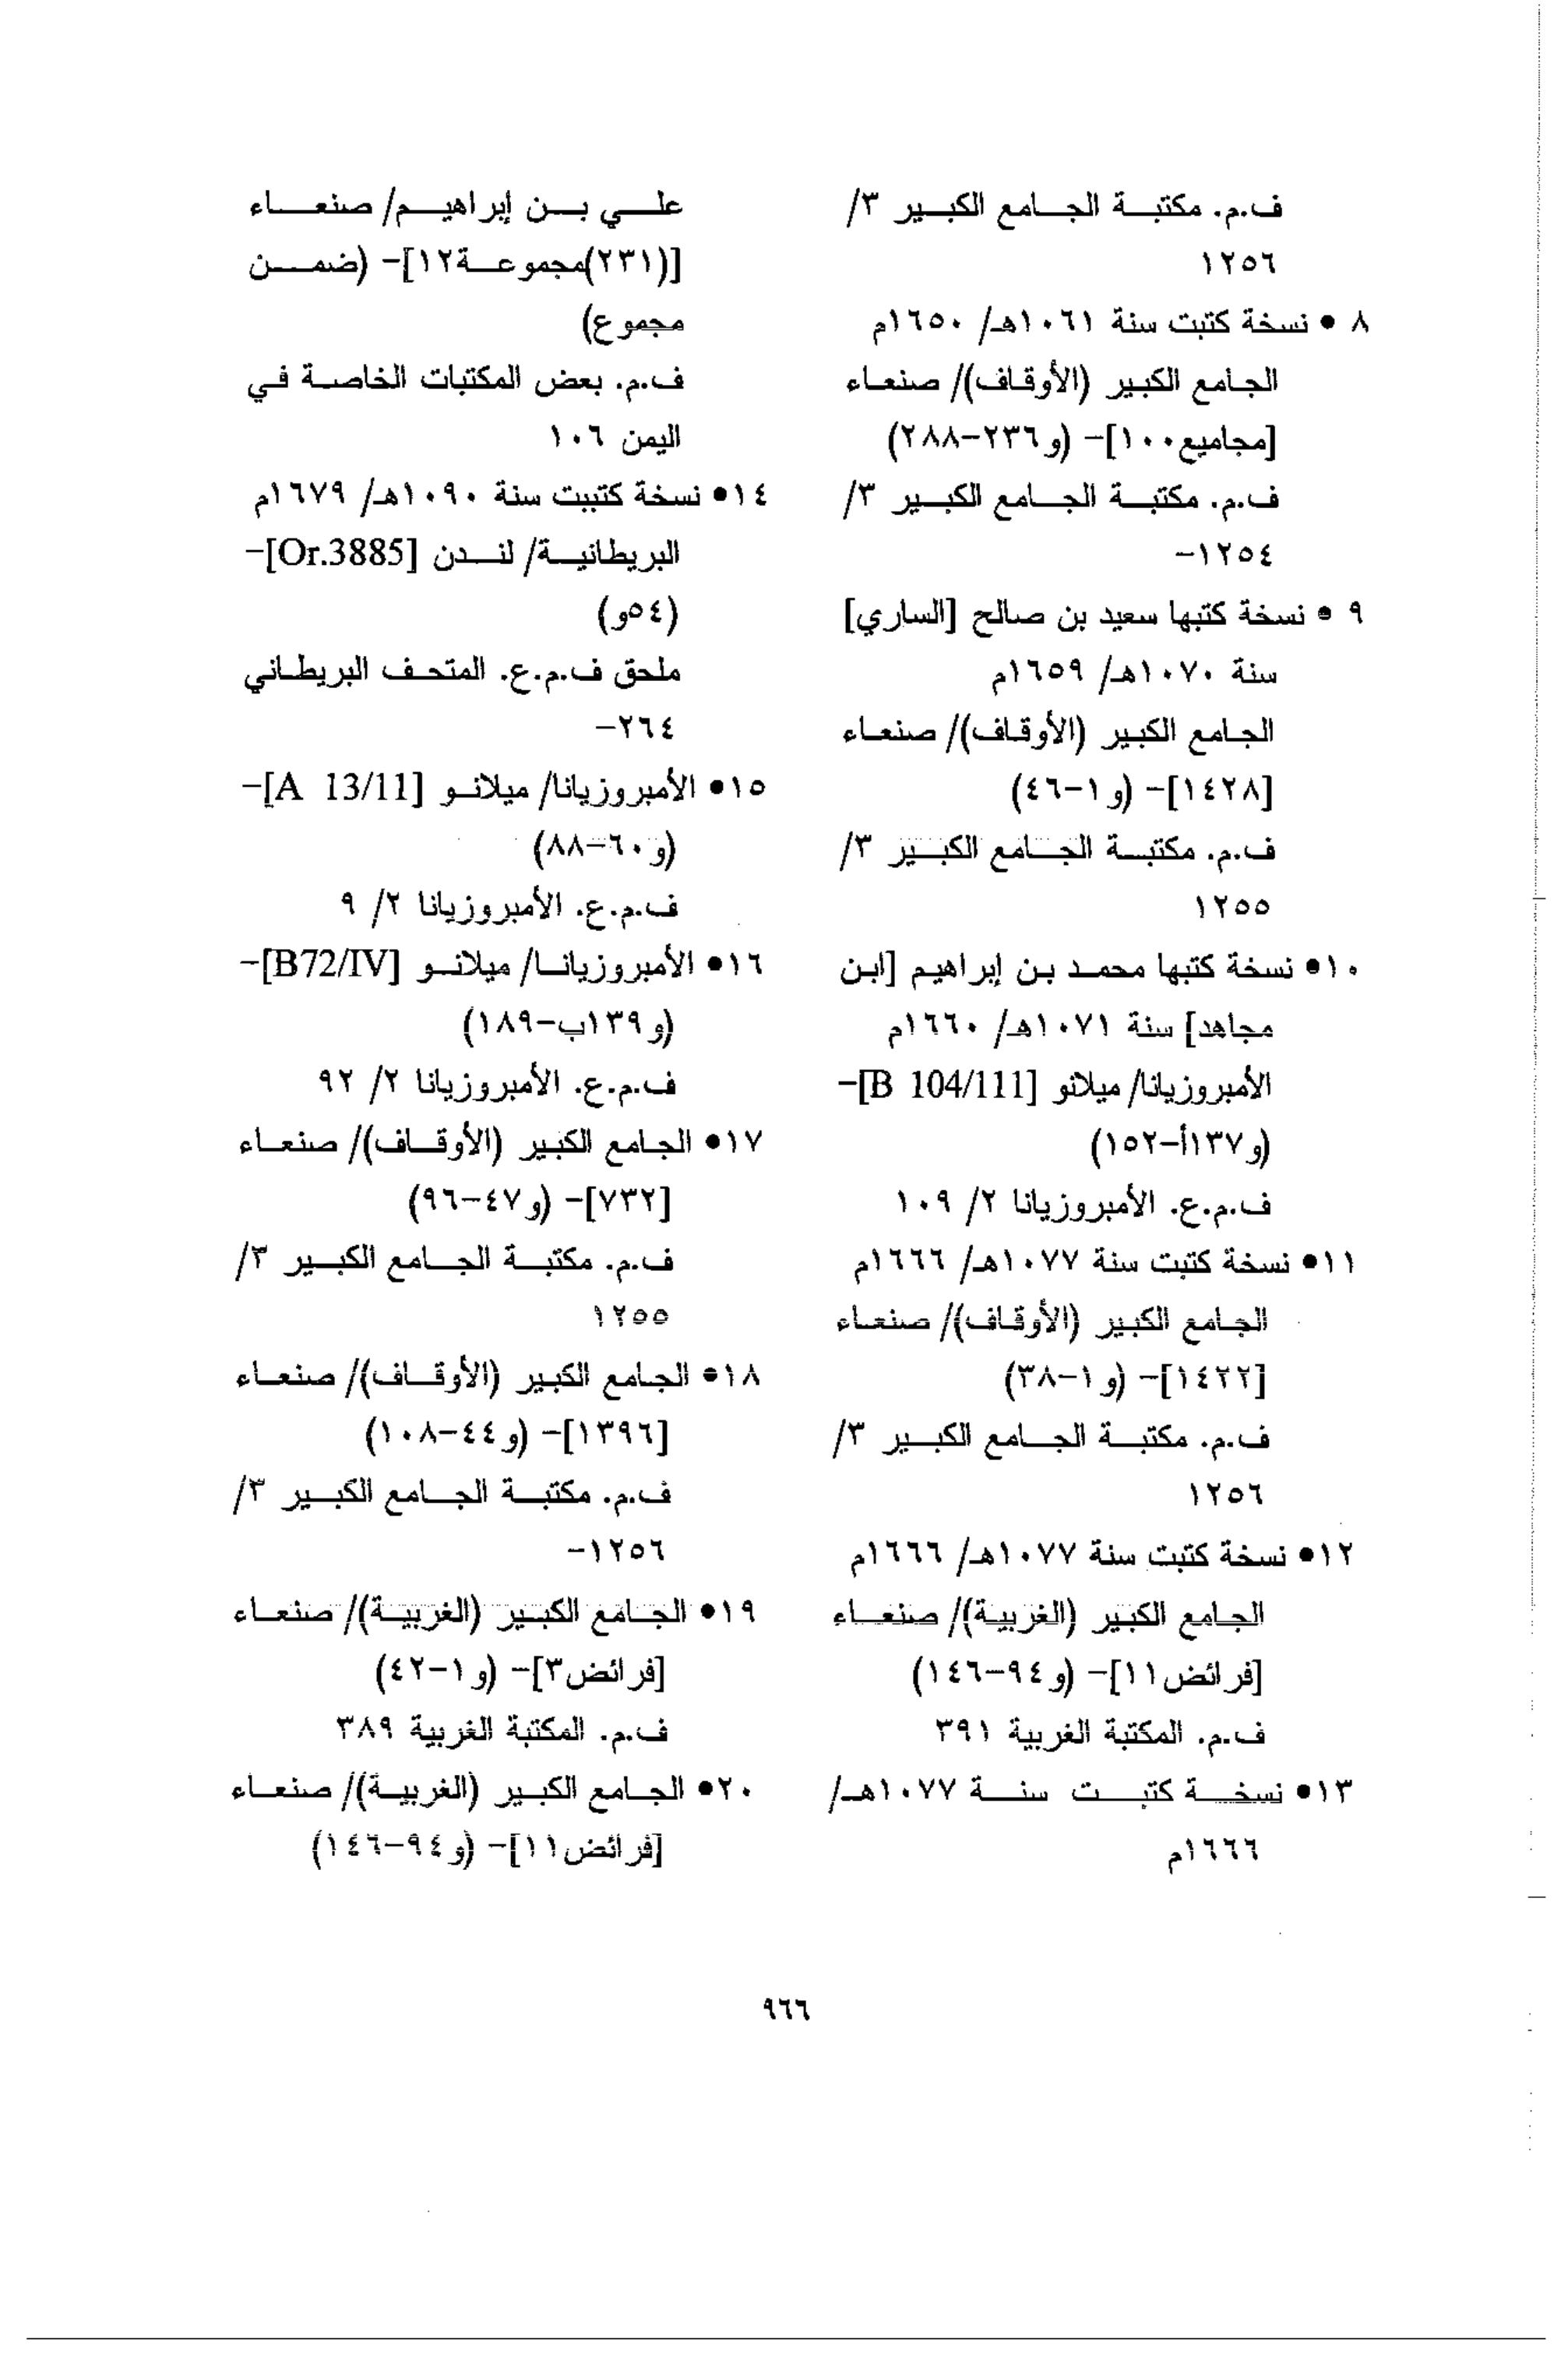 ف.م. مكتبة الجامع الكبير ٣/
١٢٥٦
٨ • نسخة كتبت سنة ١٠٦١هـ/ ١٦٥٠م
الجامع الكبير (الأوقاف)/ صنعاء
[مجاميع١٠٠]- (و٢٣٦-٢٨٨)
ف.م. مكتبة الجامع الكبير ٣/
١٢٥٤-
٩ • نسخة كتبها سعيد بن صالح [الساري]
سنة ١٠٧٠هـ/ ١٦٥٩م
الجامع الكبير (الأوقاف)/ صنعاء
[١٤٢٨]- (و١-٤٦)
ف.م. مكتبة الجامع الكبير ٣/
١٢٥٥
١٠• نسخة كتبها محمد بن إبراهيم [ابن
مجاهد] سنة ١٠٧١هـ/ ١٦٦٠م
الأمبروزيانا/ ميلانو [B 104/111]-
(و١٣٧أ-١٥٢)
ف.م.ع. الأمبروزيانا ٢/ ١٠٩
١١• نسخة كتبت سنة ١٠٧٧هـ/ ١٦٦٦م
الجامع الكبير (الأوقاف)/ صنعاء
[١٤٢٢]- (و١-٣٨)
ف.م. مكتبة الجامع الكبير ٣/
١٢٥٦
١٢• نسخة كتبت سنة ١٠٧٧هـ/ ١٦٦٦م
الجامع الكبير (الغربية)/ صنعاء
[فرائض١١]- (و٩٤-١٤٦)
ف.م. المكتبة الغربية ٣٩١
١٣• نسخة كتبت سنة ١٠٧٧هـ/
١٦٦٦م
علي بن إبراهيم/ صنعاء
[(٢٣١)مجموعة١٢]- (ضمن
مجموع)
ف.م. بعض المكتبات الخاصة في
اليمن ١٠٦
١٤• نسخة كتببت سنة ١٠٩٠هـ/ ١٦٧٩م
البريطانية/ لندن [Or.3885]-
(٥٤و)
ملحق ف.م.ع. المتحف البريطاني
٢٦٤-
١٥• الأمبروزيانا/ ميلانو [A 13/11]-
(و٦٠-٨٨)
ف.م.ع. الأمبروزيانا ٢/ ٩
١٦• الأمبروزيانا/ ميلانو [B72/IV]-
(و١٣٩ب-١٨٩)
ف.م.ع. الأمبروزيانا ٢/ ٩٢
١٧• الجامع الكبير (الأوقاف)/ صنعاء
[٧٣٢]- (و٤٧-٩٦)
ف.م. مكتبة الجامع الكبير ٣/
١٢٥٥
١٨• الجامع الكبير (الأوقاف)/ صنعاء
[١٣٩٦]- (و٤٤-١٠٨)
ف.م. مكتبة الجامع الكبير ٣/
١٢٥٦-
١٩• الجامع الكبير (الغربية)/ صنعاء
[فرائض٣]- (و١-٤٢)
ف.م. المكتبة الغربية ٣٨٩
٢٠• الجامع الكبير (الغربية)/ صنعاء
[فرائض١١]- (و٩٤-١٤٦)
٩٦٦